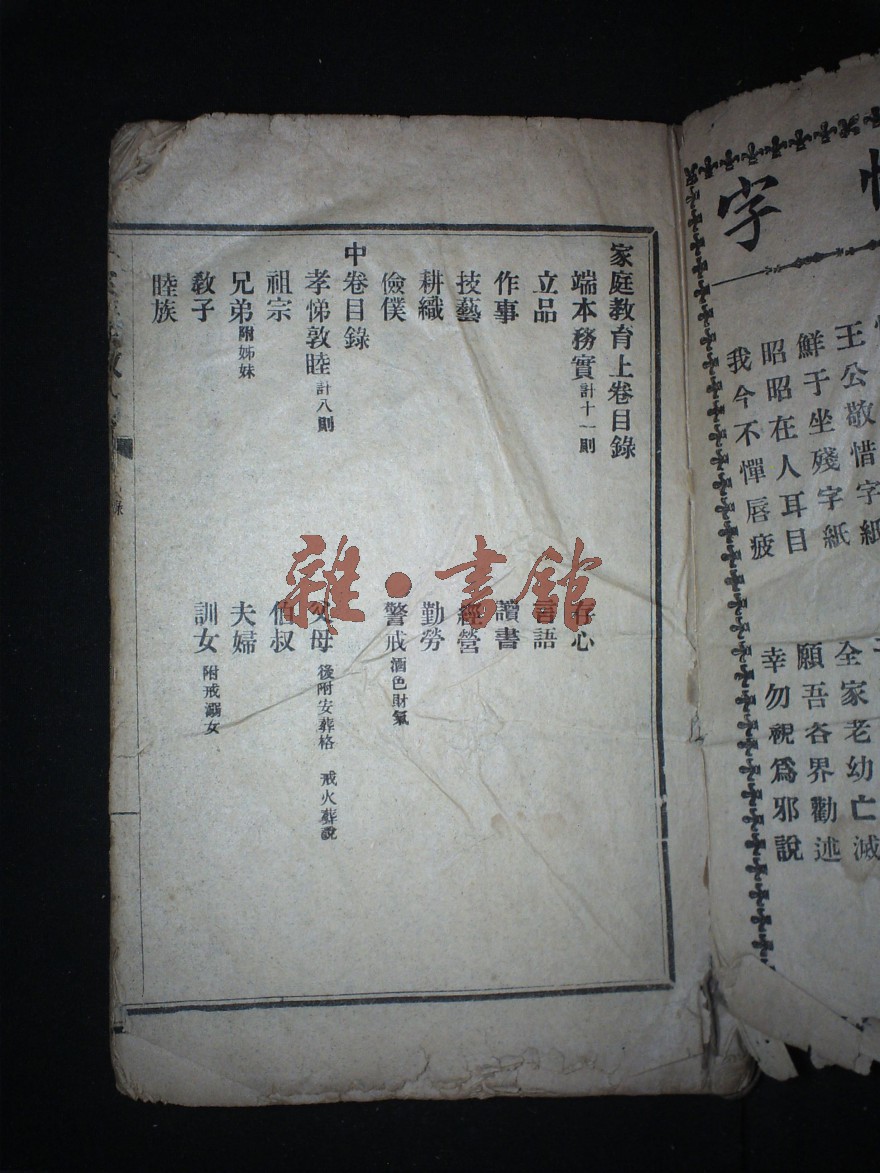 惜
字
王公敬惜字紙
鮮于坐殘字紙
全家老幼亡滅
昭昭在人耳目
願吾各界勸述
我今不憚唇疲
幸勿視爲邪說
家庭教育上卷目錄
端本務實計十一則
存心
立品
言語
作事
讀書
技藝
經營
耕織
勤勞
儉僕
警戒酒色財氣
中卷目錄
孝悌敦睦計八則
父母 後附安葬格 戒火葬說
祖宗
伯叔
兄弟附姊妹
夫婦
教子
訓女 附戒溺女
睦族
雜·書館